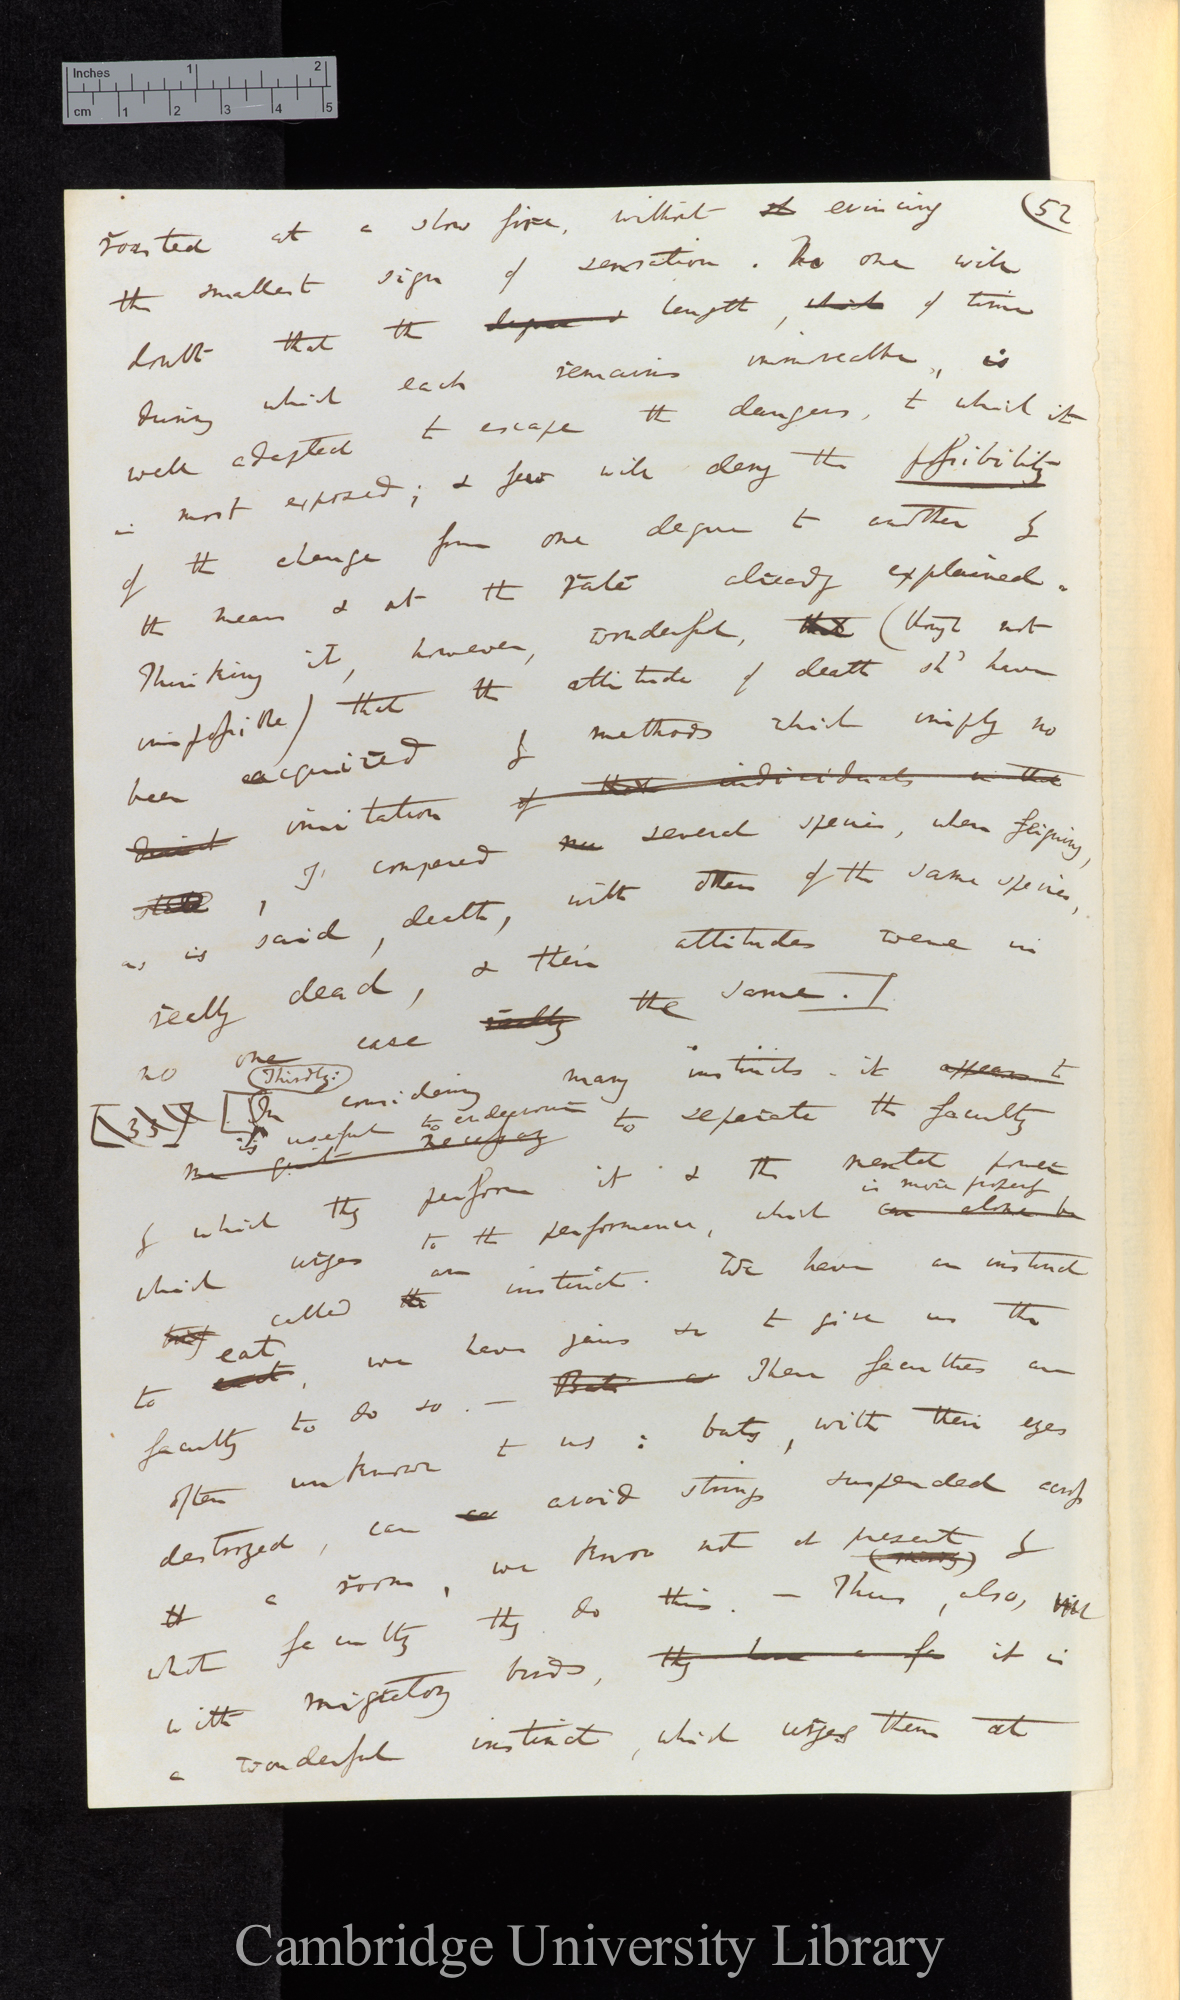 Inches 1 2
cm 1 2 3 4 5
(52
roasted at a slow fire, without evincing
the smallest sign of sensation. No one will
doubt that the degree & length, which of time
during which each remains immoveable, is
well adapted to escape the dangers, to which it
is most exposed; & few will deny the possibility
of the change from one degree to another by
the means & at the rate already explained.
Thinking it, however, wonderful, that (though not
impossible) that the attitude of death shd have
been acquired by methods which imply no
direct imitation of those individuals in the
state, I compared several species, when feigning,
as is said, death, with others of the same species,
really dead, & their attitudes were in
no one case really the same.
Thirdly:
(33) In considering many instincts it appears to
is useful to endeavour
me quite necessary to separate the faculty
by which they perform it & the mental power
is more properly
which urges to the performance, which can alone be
an
called the instinct. We have an instinct
eat
to eat, we have jaws &c to give us the
faculty to do so. — But as These faculties are
often unknown to us: bats, with their eyes
destroyed, can avoid strings suspended across
a room, we know not at present by
what faculty they do this. — Thus, also,
with migratory birds, they have a fa it is
a wonderful instinct, which urges them at
Cambridge University Library